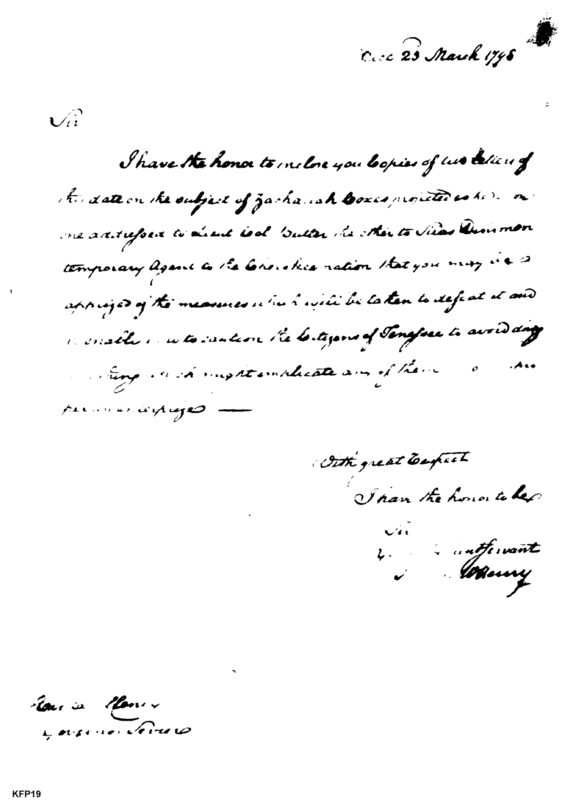 23 March 1798
Sir
I have the honor to inclose you Copies of two letters of
this date on the subject of Zachariah Coxes projected
one addressed to Lieut Col Butler the other to Silas Dinsmon
temporary Agent to the Cherokee nation that you may be
apprized of the measures which will be taken to defeat it and
to enable you to caution the Citizens of Tenessee to avoid doing
any thing which might implicate any of them

With great respect
I have the honor to be
Sir
servant
McHenry
Governor Sevier
KFP19